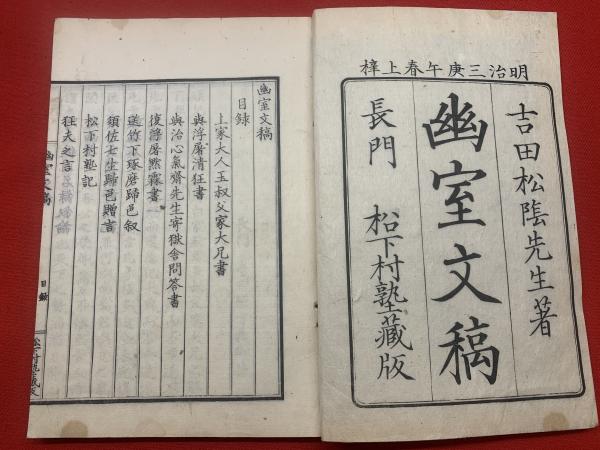 明治三庚午春上梓
吉田松陰先生著
幽室文稿
長門 松下村塾蔵版
幽室文稿
目録
上家大人玉叔父家大兄書
與浮屠清狂書
與治心氣齋先生寄獄舎問答書
復浮屠黙霖書
送竹下琢磨歸邑叙
須佐七生歸邑贈言
松下村塾記
狂夫之言
幽室文稿
目録
松下村塾蔵版